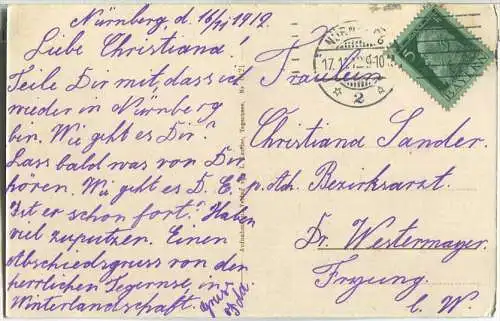 Nürnberg, d. 16/11 1912.
Liebe Christiana!
Teile Dir mit, dass ich
wieder in Nürnberg
bin. Wie geht es Dir?
Lass bald was von Dir
hören. Wie geht es D. E.
Ist er schon fort? Haben
viel zuputzen. Einen
Abschiedsgruss von der
herrlichen Tegernse, in
Winterlandschaft.
Gruss
Fräulein
Christiana Sander.
p. Adr. Bezirksarzt.
Dr. Westermayer.
Freyung
b. W.
NÜRN
17.11.12.9-10
2
5
BAYERN